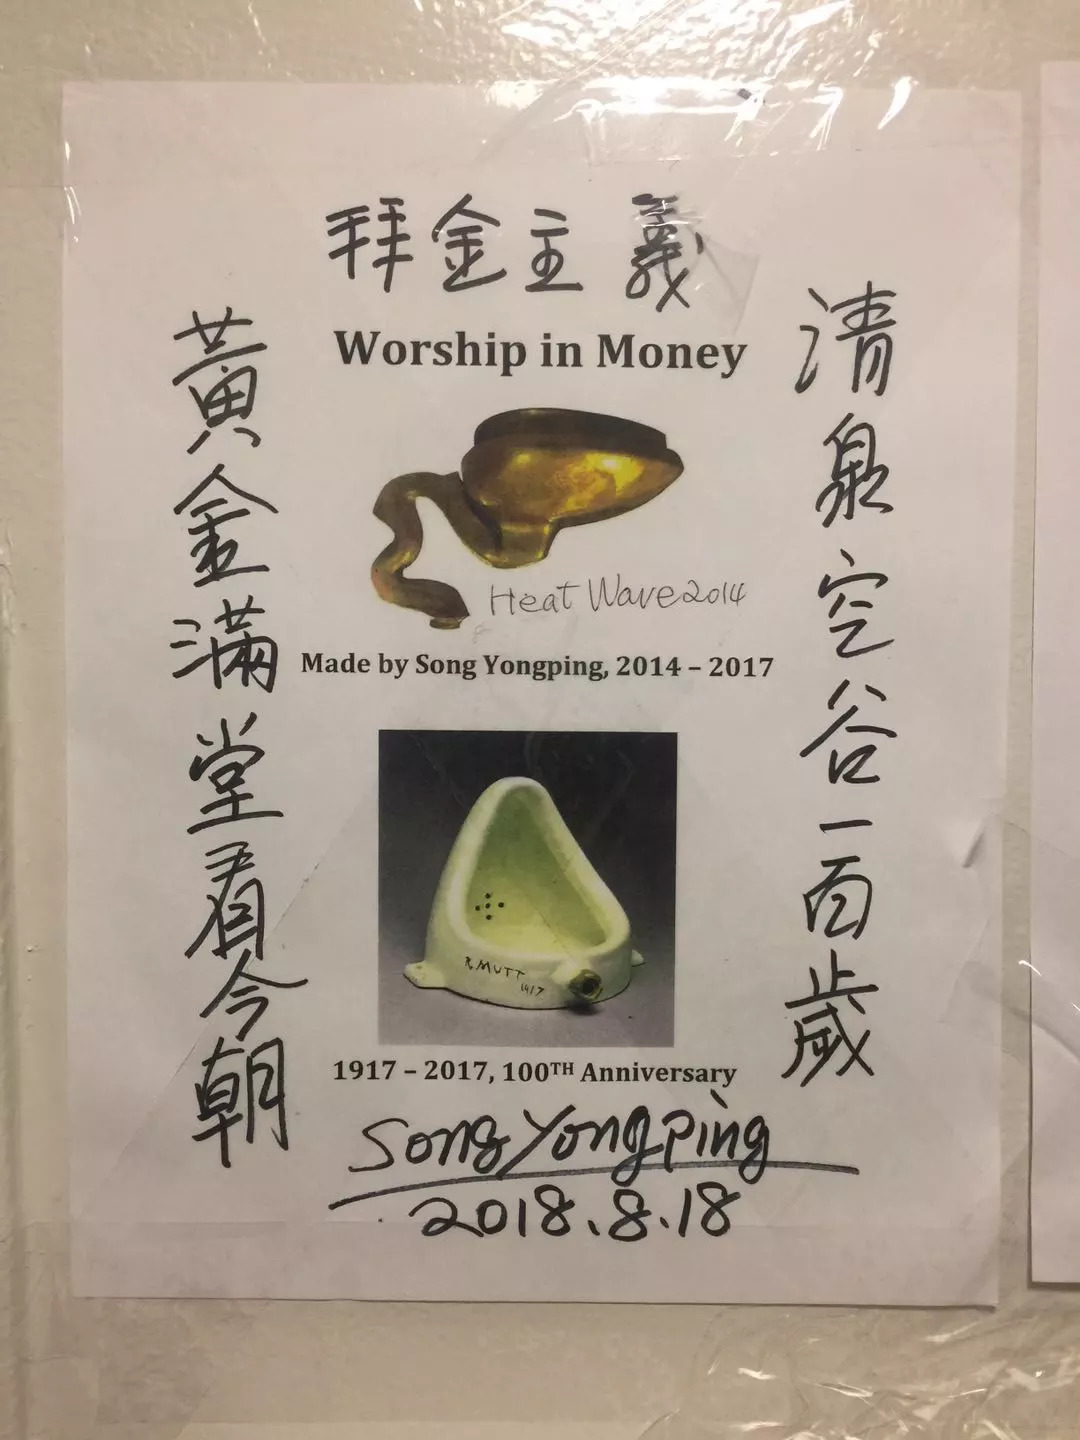 拜金主義
Worship in Money
清泉空谷一百歲
黃金滿堂看今朝
Heat Wave 2014
Made by Song Yongping, 2014 – 2017
R. MUTT
1917
1917 – 2017, 100TH Anniversary
Song Yongping
2018.8.18